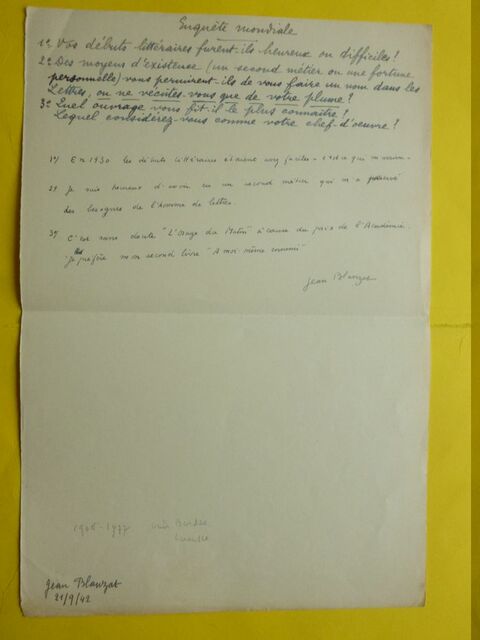 Enquête mondiale
1º. Vos débuts littéraires furent-ils heureux ou difficiles?
2º. Des moyens d'existence (un second métier ou une fortune
personnelle) vous permirent-ils de vous faire un nom dans les
Lettres, ou ne vécûtes-vous que de votre plume?
3º. Quel ouvrage vous fit-il le plus connaître?
Lequel considérez-vous comme votre chef-d'oeuvre?
1º) En 1930 les débuts littéraires étaient assez faciles -
2º) Je suis heureux d'avoir eu un second métier qui m'a préservé
des besognes de l'homme de lettres.
3º) C'est sans doute "L'Orage du Matin" à cause du prix de l'Académie.
Je préfère mon second livre "A moi-même ennemi"
Jean Blanzat
1906-1977
Jean Blanzat
21/9/42